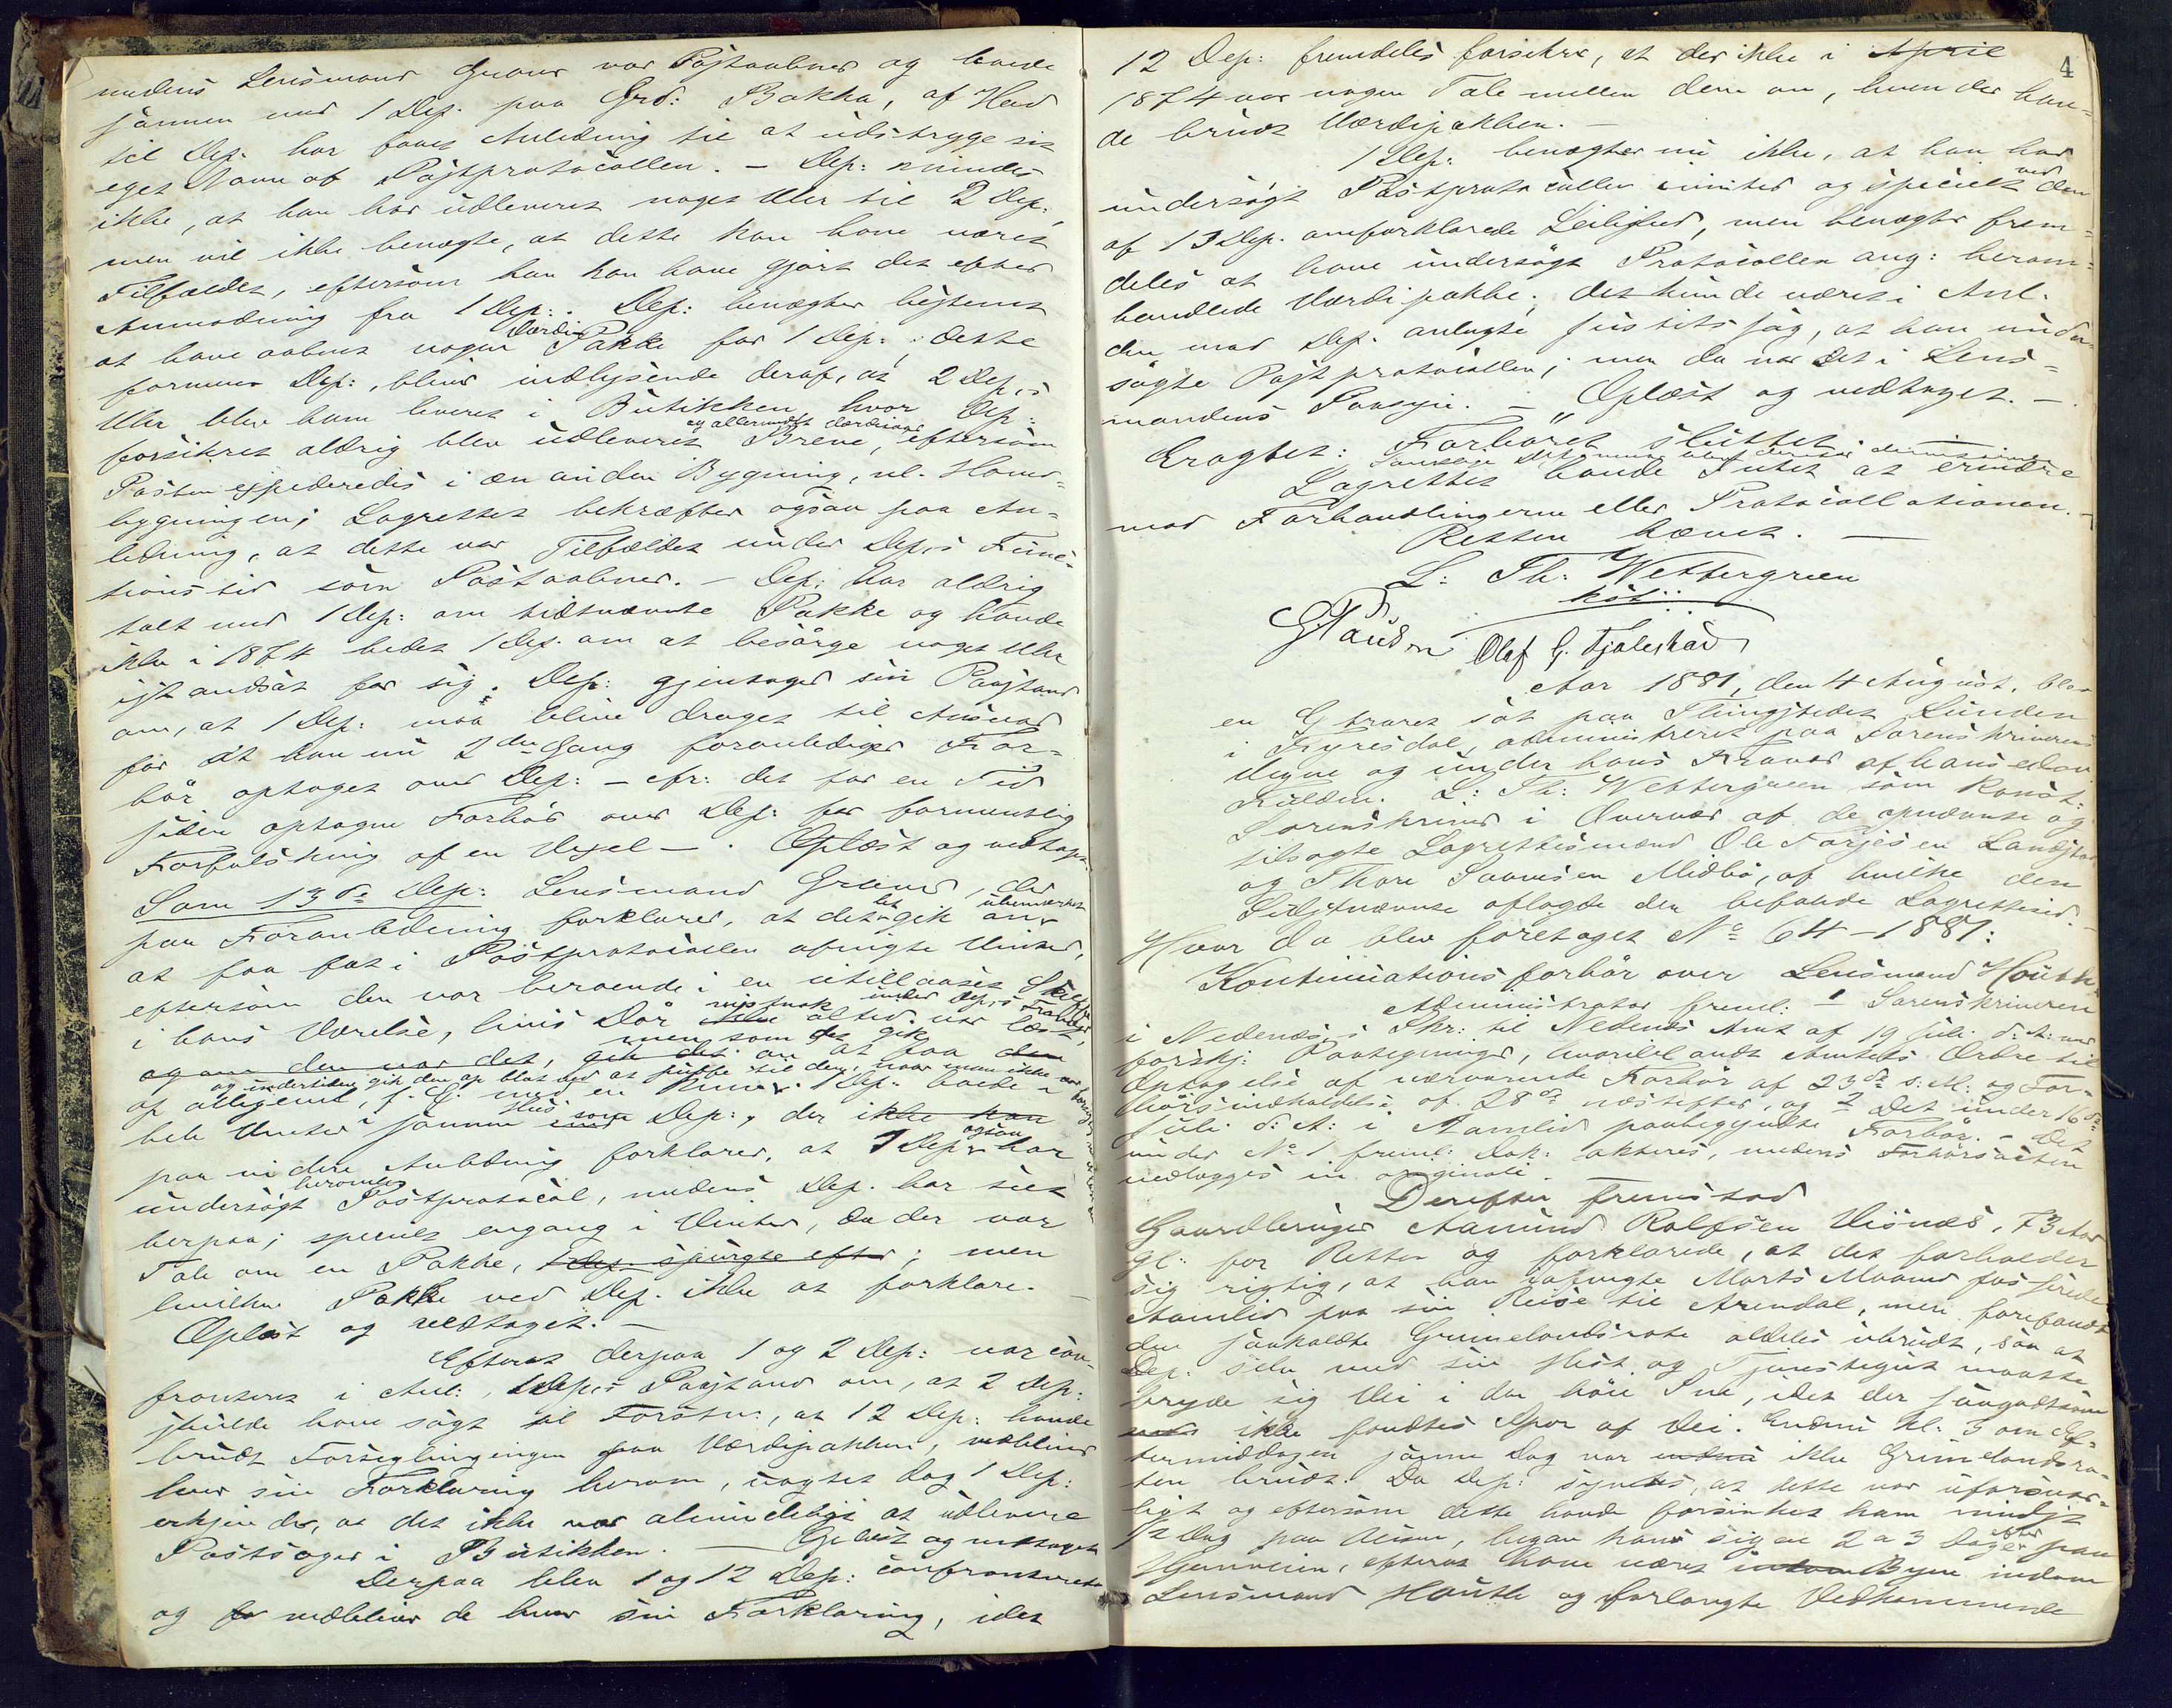 medens Lensmand Gruner var Postaabner og boede
sammen med 1 Dep. paa Grd: Bakka, af Had
til Dep. har faaet Anledning til at udstryge sit
eget Navn af Postprotocollen. – Dep: mindes
ikke, at han har udleveret noget Uhr til 2 Dep.,
men vil ikke benægte, at dette kan have været
Tilfældet, eftersom han kan have gjort det efter
Anmodning fra 1 Dep:. Dep: benægter bestemt
at have aabnet nogen Værdi Pakke for 1 Dep:; dette
formener Dep:, bliver indlysende deraf, at 2 Dep.s
Uhr blev ham leveret i Butikken hvor Dep:
forsikrer aldrig blev udleveret Breve, og allermindst Værdisager eftersom
Posten expederedes i en anden Bygning, nl. Hoved-
bygningen; Lagrettet bekræfter ogsaa paa An-
ledning, at dette var Tilfældet under Dep.s Func-
tionstid som Postaabner. – Dep: har aldrig
talt med 1 Dep: om sidstnævnte Pakke og havde
ikke i 1874 bedet 1 Dep. om at besørge noget Uhr
istandsat for sig. Dep: gjentager sin Paastand
om, at 1 Dep: maa blive draget til Ansvar
for at han nu 2den Gang foranlediger For-
hør optaget over Dep: – cfr: det for en Tid
siden optagne Forhør over Dep: for formentlig
Forfalskning af en Vexel – . Oplæst og vedtaget.
Som 13de Dep: Lensmand Gruner, der
paa Foranledning forklarer, at det let gik an ubemærket
at faa fat i Postprotocollen afvigte Vinter,
eftersom den var beroende i en utillaaset Skuffe
i hans Værelse, hvis Dør ikke altid var læst, under Dep.s Fravær
og om den var det, gik det an at faa den
op alligevel, f. Ex. med en Kniv. 1 Dep. boede
hele Vinter i samme Hus som Dep:, der ikke kan
paa videre Anledning forklarer, at 1 Dep. ogsaa har
undersøgt heromhandlede Postprotocol, medens Dep. har seet
herpaa; specielt engang i Vinter, da der var
Tale om en Pakke, 1 Dep. spurgte efter; men
hvilken Pakke ved Dep. ikke at forklare. –
Oplæst og vedtaget. –
Efterat derpaa 1 og 2 Dep: var con-
fronteret i Anl:, 1 Dep.s Paastand om, at 2 Dep:
skulde have sagt til Forstn:, at 12 Dep: havde
brudt Forseglingingen paa Værdipakken, vedbliver
hver sin Forklaring herom, uagtet dog 1 Dep:
erkjender, at det ikke var almindeligt at udlevere
Postsager i Butikken. – Oplæst og vedtaget
Derpaa blev 1 og 12 Dep: confronterede
og for vedbliver de hver sin Forklaring, idet
4
12 Dep: fremdeles forsikre, at der ikke i April
1874 var nogen Tale mellem dem om, hvem der hav-
de brudt Værdipakken. –
1 Dep: benægter nu ikke, at han har
undersøgt Postprotocollen i vinter og specielt ved den
af 13 Dep. omforklarede Leilighed, men benægter frem-
deles at have undersøgt Protocollen ang: herom-
handlede Værdipakke; det kunde været i Anl.
den mod Dep. anlagte Justitssag, at han under-
søgte Postprotocollen; men da var det i Lens-
mandens Paasyn. – Oplæst og vedtaget. –
Eragtet: Forhøret sluttet
Lagrettet havde Intet at erindre
mod Forhandlingerne eller Protocollationen. –
Retten hævet. –
L: Th: Wettergreen
kst:
Olaf G. Fjalestad
Aar 1881, den 4 August, blev
en Extraret sat paa Thingstedet Lunden
i Fyresdal, administreret paa Sorenskriverens
Vegne og under hans Ansvar af hans edsv.
Fuldm. L: Th: Wettergreen som Konst:
Sorenskriver i Overvær af de opnævnte og
tilsagte Lagrettesmænd Ole Tarjesen Landstad
og Thore Saavesen Midbø, af hvilke den
Sidstnævnte aflagde den befalede Lagretteed. –
Hvor da blev foretaget No 64 – 1881:
Kontinuationsforhør over Lensmand Houth
Administrator freml: 1 Sorenskriveren
i Nedenæs's Skr: til Nedenæs Amt af 19 Juli d: A: med
forskj: Paategninger, hvoriblandt Amtets Ordre til
Optagelse af nærværende Forhør af 23de s. M: og For-
hørs indholdelse af 28de næstefter, og 2 Det under 16de
Juli d: A: i Aamlid paabegyndte Forhør. – Det
under No 1 freml: Dok: akteres, medens Forhørsacten
vedlægges in originali.
Derefter fremstod
Gaardbruger Aamund Rolfsen Visnæs, 73 Aar
gl: for Retten og forklarede, at det forholder
sig rigtig, at han i afvigte Marts Maaned passerede
Aamlid paa sin Reise til Arendal, men forefandt
den saakaldte Grimelandsrote aldeles ubrudt, saa at
Dep. selv med sin Hest og Tjenestegut maatte
bryde sig Vei i den høie Sne, idet der saagodtsom
ikke fandtes Spor af Vei. Endnu Kl: 3 om Ef-
termiddagen samme Dag var endnu ikke Grimelandsro-
ten brudt. Da Dep: syntes, at dette var uforsvar-
ligt og eftersom dette havde forsinket ham mindst
1/2 Dag paa Veien, begav han sig en 2 a 3 Dage efter paa
Hjemveien, efterat have været i Byen indom
Lensmand Houth og forlangte Vedkommende